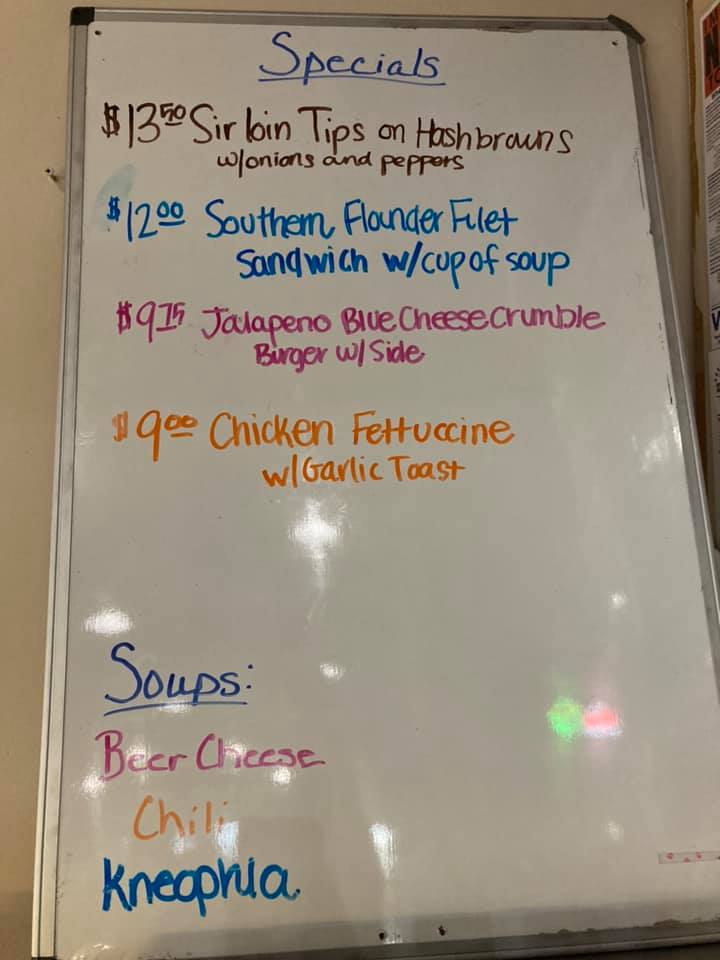 Specials
$13.50 Sirloin Tips on Hashbrowns
w/onions and peppers
$12.00 Southern Flounder Filet
Sandwich w/cup of soup
$9.75 Jalapeno Blue Cheese Crumble
Burger w/ Side
$9.00 Chicken Fettuccine
w/Garlic Toast
Soups:
Beer Cheese
Chili
Kneophla